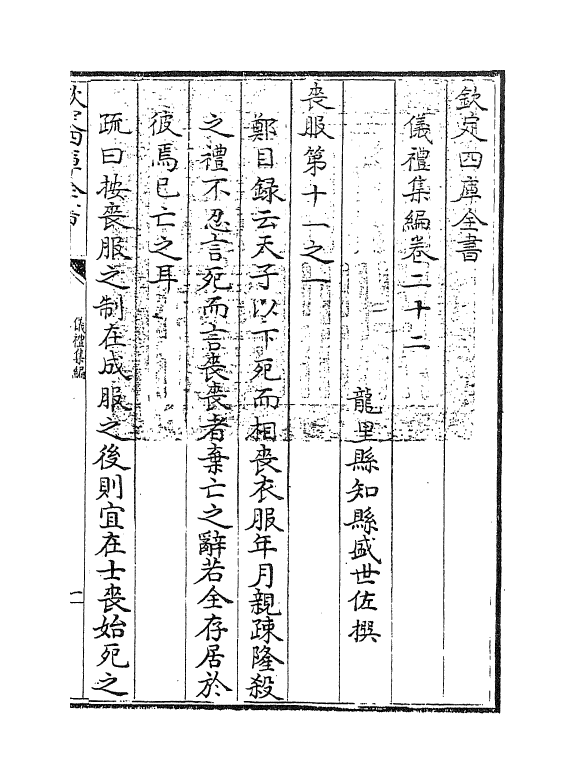 欽定四庫全書
儀禮集編卷二十二
龍里縣知縣盛世佐撰
喪服第十一之一
鄭目録云天子以下死而相喪衣服年月親疎隆殺
之禮不忍言死而言喪喪者棄亡之辭若全存居於
彼焉已亡之耳
疏曰按喪服之制在成服之後則宜在士喪始死之
欽定四庫全書
儀禮集編
一